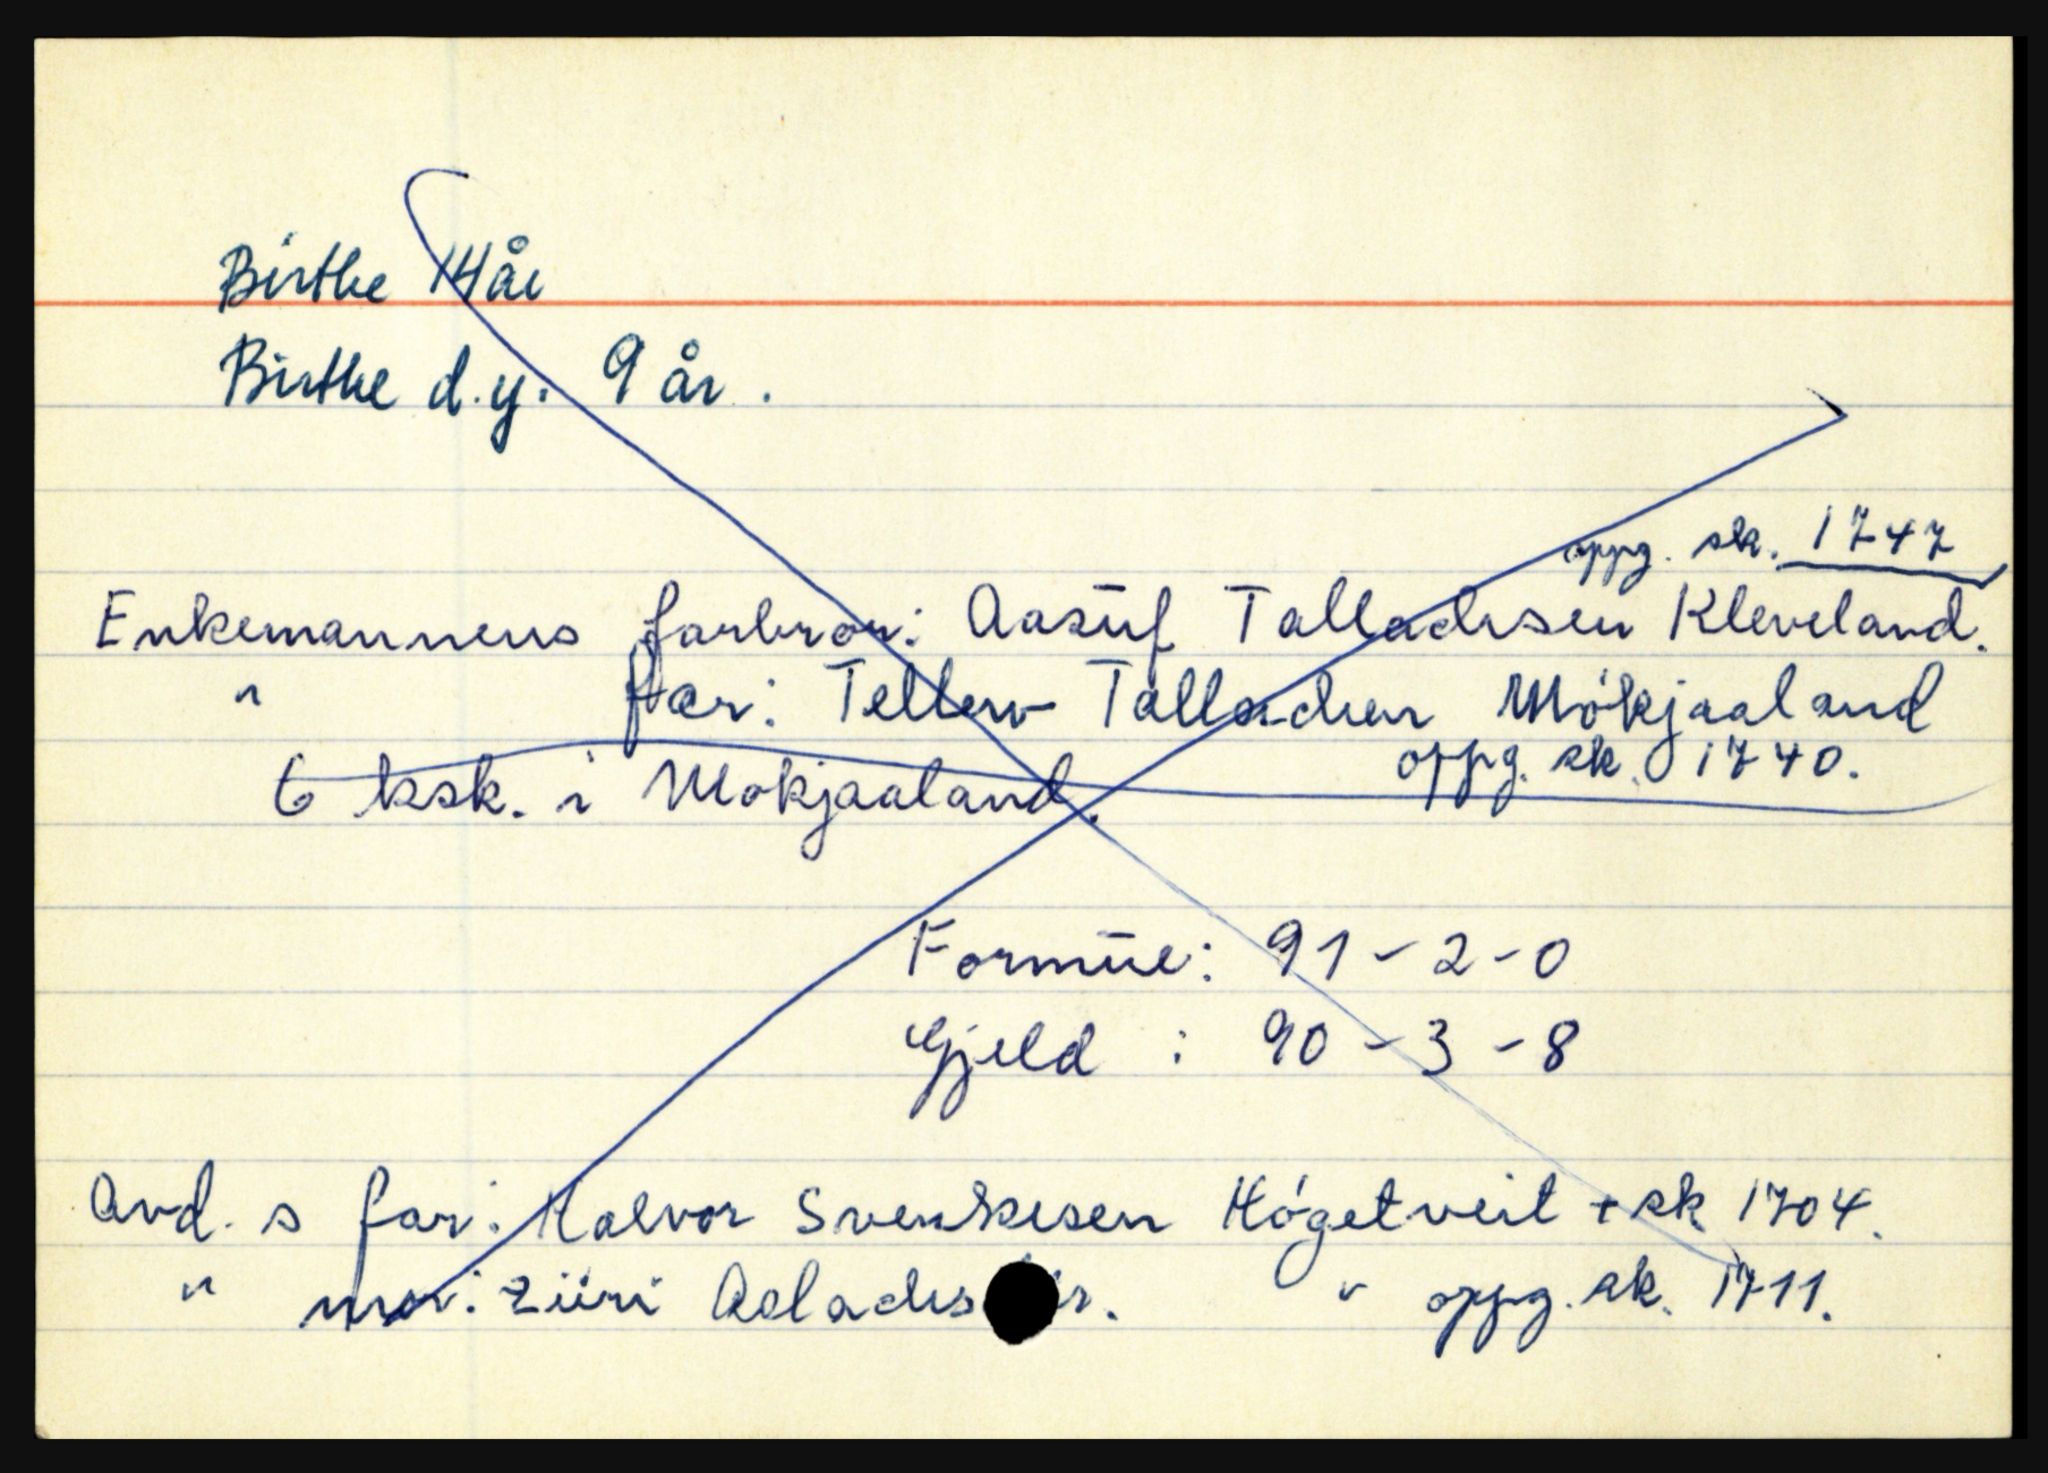 Birthe 14 år
Birthe d.y. 9 år.
oppg. sk. 1747
Enkemannens farbror: Aasŭf Talladsen Kleveland.
" far: Tellev Talladsen Mókjaaland
oppg. sk. 1740.
6 ksk. i Mokjaaland.
Formŭe: 91-2-0
Gjeld : 90-3-8
Avd. s far: Halvor Svenkesen Hógetveit + sk 1704.
" mor: Ziŭri " oppg. sk. 1711.